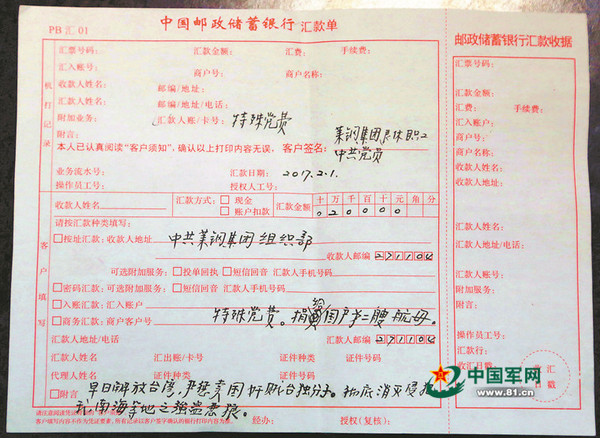 PB汇01
中国邮政储蓄银行 汇款单
汇票号码: 汇款金额: 汇费: 手续费:
汇入账号: 商户号:
收款人姓名: 邮编/地址:
汇款人姓名: 邮编/地址/电话:
附加业务: 汇款人账/卡号: 特殊党费
附言: 莱钢集团退休职工
本人已认真阅读“客户须知”,确认以上打印内容无误, 客户签名: 中共党员
业务流水号: 汇款日期: 2017.2.1.
操作员工号: 授权人工号:
机打记录
收款人姓名 汇款方式: 现金 账户扣款 汇款金额 十万千百十元角分
020000
请按汇款种类填写:
按址汇款: 收款人地址 中共莱钢集团组织部
收款人邮编 271104
可选附加服务: 投单回执 短信回音 汇款人手机号码
密码汇款: 可选附加服务: 短信回音 汇款人手机号码
入账汇款: 汇入账户
商务汇款: 商户客户号 特殊党费。捐给国户第二艘航母。
汇款人地址/电话 汇款人邮编 271104
汇款人姓名 汇出账/卡号 证件种类 证件号码
代理人姓名 证件种类 证件号码
附言 早日解放台湾,严惩卖国奸贼台独分子。彻底消灭侵
我南海等地之强盗恶狼。
客户填写
经办: 授权(复核):
邮政储蓄银行汇款收据
汇票号码:
汇款金额:
汇费: 手续费:
汇入账户:
商户号:
商户名称:
收款人姓名:
收款人地址:
汇款人姓名:
汇款人地址/电话:
汇款人账号:
附加业务:
附言:
操作员工号:
汇款行:
收汇日期:
收汇
日戳
中国军网
www.81.cn